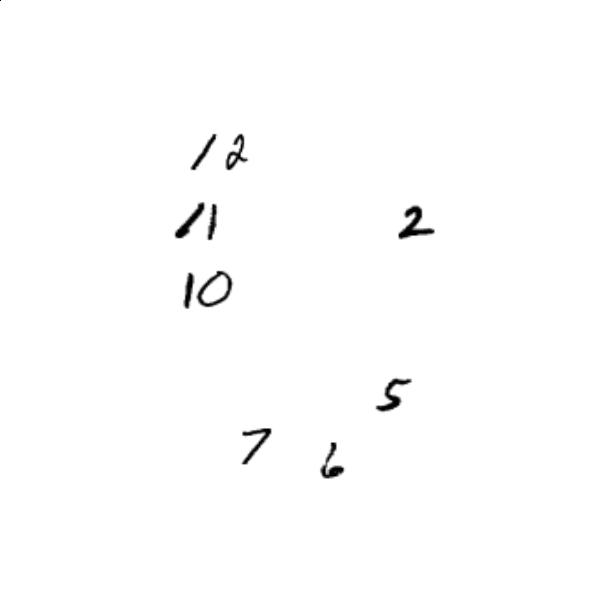 12
11 2
10
5
7 6